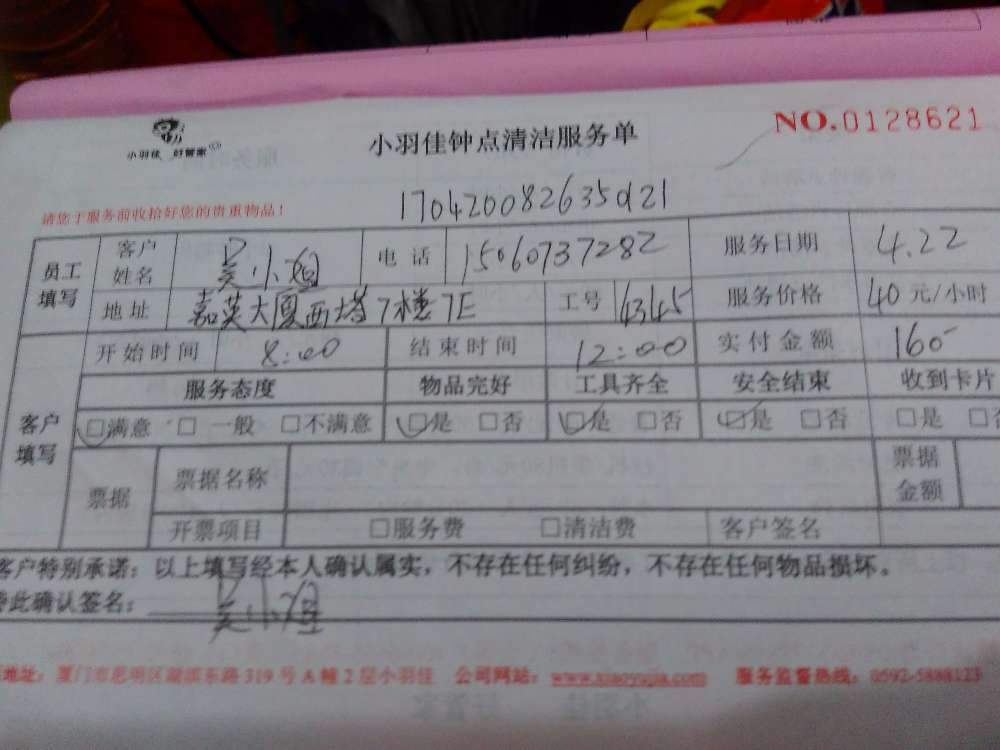 小羽佳 好管家
小羽佳钟点清洁服务单
NO.0128621
请您于服务前收拾好您的贵重物品！
170420082635021
员工填写 客户姓名 吴小姐 电话 15060737282 服务日期 4.22
地址 嘉英大厦西塔7楼7E 工号 4345 服务价格 40元/小时
客户填写 开始时间 8:00 结束时间 12:00 实付金额 160
服务态度 物品完好 工具齐全 安全结束 收到卡片
□满意 □一般 □不满意 □是 □否 □是 □否 □是 □否 □是 □否
票据 票据名称 票据金额
开票项目 □服务费 □清洁费 客户签名
客户特别承诺：以上填写经本人确认属实，不存在任何纠纷，不存在任何物品损坏。
此确认签名： 吴小姐
地址：厦门市思明区湖滨东路319号A幢2层小羽佳 公司网站：www.xiaoyujia.com 服务监督热线：0592-5888123